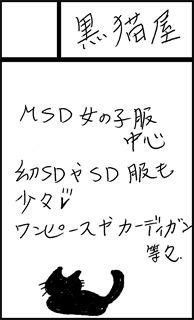 黒猫屋
MSD女の子服
中心
幼SDやSD服も
少々
ワンピースやカーディガン
等々